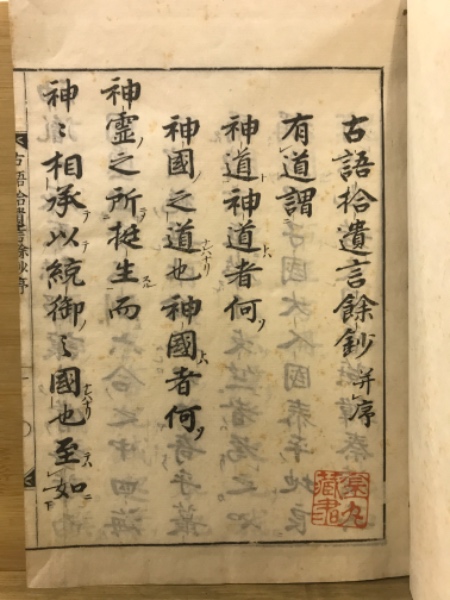 古語拾遺言餘鈔 并序
有道謂
神道神道者何
神國之道也神國者何
神靈之所挺生而
神〻相承以統御之國也至如
古語拾遺言餘鈔序
藏書